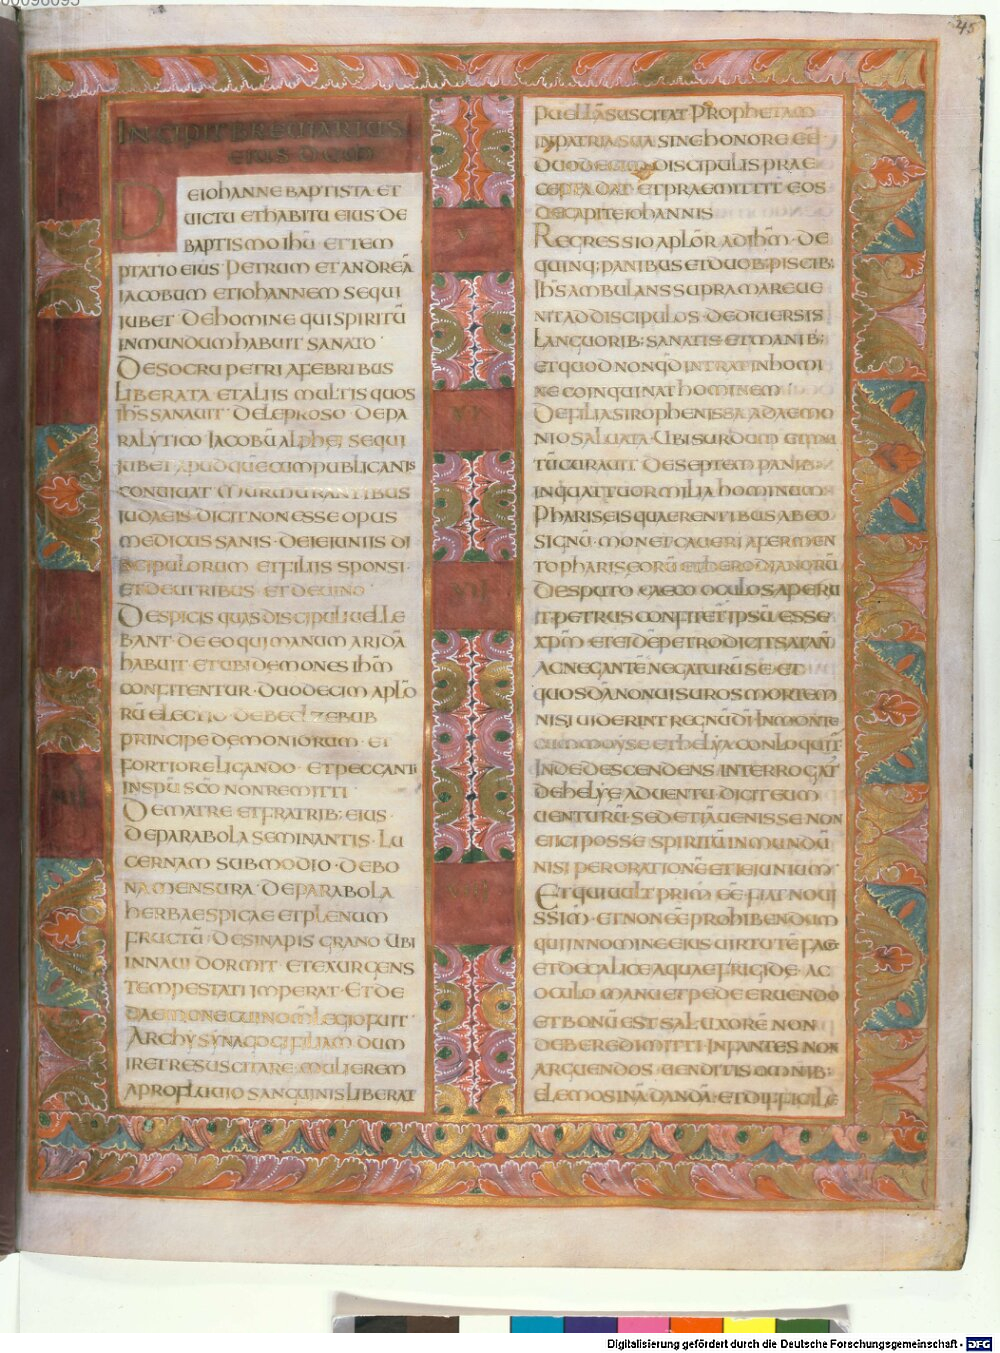 45
INCIPIT BREVIARIUS
EIUS D QUO
DEIOHANNE BAPTISTA ET
UICTU ET HABITU EIUS DE
BAPTISMO IHŪ ET TEM
PTATIO EIUS PETRUM ET ANDREĀ
IACOBUM ET IOHANNEM SEQUI
IUBET DE HOMINE QUI SPIRITŪ
INMUNDUM HABUIT SANATO
DE SOCRU PETRI A FEBRIBUS
LIBERATA ET ALIIS MULTIS QUOS
IHS SANAUIT DE LEPROSO DE PA
RALYTICO IACOBŪ ALPHEI SEQUI
IUBET APUD QUĒ CUM PUBLICANIS
CONUIUAT MURMURANTIBUS
IUDAEIS DICIT NON ESSE OPUS
MEDICUS SANIS DE IEIUNIIS DI
SCIPULORUM ET FILIIS SPONSI
ET DE UTRIBUS ET DE UINO
DE SPICIS QUAS DISCIPULI UELLE
BANT DE EO QUI MANUM ARIDĀ
HABUIT ET UBI DEMONES IHM̄
CONFITENTUR DUODECIM APLŌ
RŪ ELECTIO DE BEELZEBUB
PRINCIPE DEMONIORUM ET
FORTIORE LIGANDO ET PECCANTI
IN SPŪ SCŌ NON REMITTI
DE MATRE ET FRATRIB; EIUS
DE PARABOLA SEMINANTIS LU
CERNAM SUB MODIO DE BO
NA MENSURA DE PARABOLA
HERBAE SPICAE ET PLENUM
FRUCTŪ DE SINAPIS GRANO UBI
IN NAUI DORMIT ET EXURGENS
TEMPESTATI IMPERAT ET DE
DAEMONE CUI NOM̄ LEGIO FUIT
ARCHYSYNAGOGI FILIAM DUM
IRET RESUSCITARE MULIEREM
A PROFLUUIO SANGUINIS LIBERAT
PUELLĀ SUSCITAT PROPHETAM
IN PATRIA SUA SINE HONORE EĒ
DUODECIM DISCIPULIS PRAE
CEPTA DAT ET PRAEMITTIT EOS
DE CAPITE IOHANNIS
REGRESSIO APLŌR AD IHM̄ DE
QUINQ; PANIBUS ET DUOB; PISCIB;
IHS AMBULANS SUPRA MARE UE
NIT AD DISCIPULOS DE DIUERSIS
LANGUORIB; SANATIS ET MANIB;
ET QUOD NON QD̄ INTRAT IN HOMI
NE COINQUINAT HOMINEM
DE FILIA SIROPHENISSA A DAEMO
NIO SALUATA UBI SURDUM ET MU
TŪ CURAUIT DE SEPTEM PANIB;
IN QUATTUOR MILIA HOMINUM
PHARISEIS QUAERENTIBUS AB EO
SIGNŪ MONET CAUERI A FERMEN
TO PHARISEORŪ ET HERODIANORŪ
DE SPUTO CAECO OCULOS APERU
IT PETRUS CONFITET IPSŪ ESSE
XPM̄ ET EIDĒ PETRO DICIT SATAN
AC NEGANTĒ NEGATURŪ SE ET
QUOSDĀ NON UISUROS MORTEM
NISI UIDERINT REGNŪ DĪ IN MONTE
CUM MOYSE ET HELYA CONLOQUIT̄
INDE DESCENDENS INTERROGAT̄
DE HELYE ADUENTU DICIT EUM
UENTURŪ SED ET IĀ UENISSE NON
EICI POSSE SPIRITŪ INMUNDŪ
NISI PER ORATIONĒ ET IEIUNIUM
ET QUI UULT PRIM; EĒ FIAT NOUI
SSIM ET NON EĒ PROHIBENDUM
QUI IN NOMINE EIUS UIRTUTĒ FACIT
ET DE CALICE AQUAE FRIGIDE AC
OCULO MANU ET PEDE ERUENDO
ET BONŪ EST SAL UXORĒ NON
DEBERE DIMITTI INFANTES NON
ARGUENDOS UENDITIS OMNIB;
ELEMOSINĀ DANDĀ ET DIFFICILE
Digitalisierung gefördert durch die Deutsche Forschungsgemeinschaft - DFG